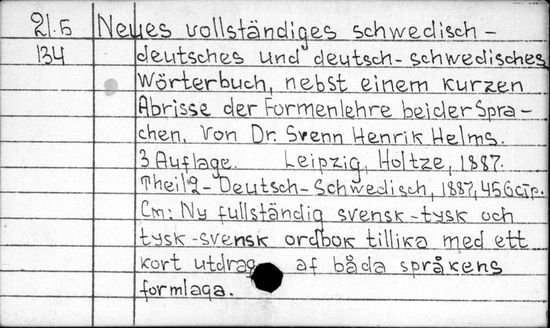 21.5 Neues vollständiges schwedisch-
134 deutsches und deutsch-schwedisches
Wörterbuch, nebst einem kurzen
Abrisse der Formenlehre beider Spra-
chen. Von Dr. Svenn Henrik Helms.
3 Auflage. Leipzig, Holtze, 1887.
Theil 2-Deutsch-Schwedisch, 1887, 456стр.
См: Ny fullständig svensk-tysk och
tysk-svensk ordbok tillika med ett
kort utdrag af båda språkens
formlaga.